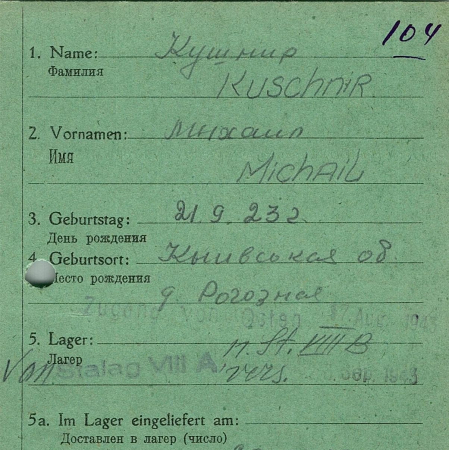 104
1. Name: Кушнир
Фамилия
KUSCHNIR.
2. Vornamen: Михаил
Имя
MICHAIL
3. Geburtstag: 21.9.23г.
День рождения
4. Geburtsort: Кыивськая об.
Место рождения
д. Рогозная
Zugang von Osten 17. Aug. 1943
5. Lager: n. St. VIII B
Лагерь
Von Stalag VIII A, vers. Sep. 1943
5a. Im Lager eingeliefert am:
Доставлен в лагерь (число)